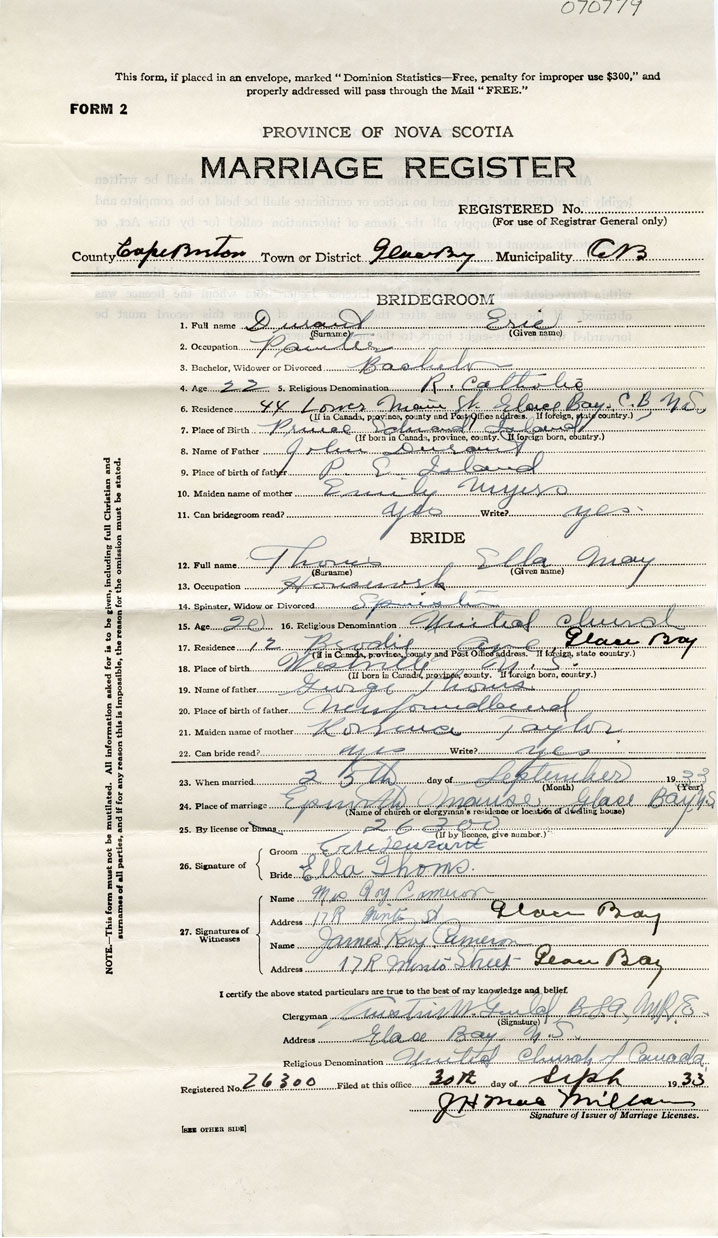 070779
This form, if placed in an envelope, marked "Dominion Statistics—Free, penalty for improper use $300," and
properly addressed will pass through the Mail "FREE."
FORM 2
PROVINCE OF NOVA SCOTIA
MARRIAGE REGISTER
REGISTERED No.
(For use of Registrar General only)
County Cape Breton Town or District Glace Bay Municipality C B
BRIDEGROOM
1. Full name Durant Eric
(Surname) (Given name)
2. Occupation Painter
3. Bachelor, Widower or Divorced Bachelor
4. Age 22 5. Religious Denomination R. Catholic
6. Residence 44 Lower Main St. Glace Bay. C.B, N.S.
(If in Canada, province, county and Post Office address. If foreign, state country.)
7. Place of Birth Prince Edward Island
(If born in Canada, province, county. If foreign born, country.)
8. Name of Father John Durant
9. Place of birth of father P. E. Island
10. Maiden name of mother Emily Myers
11. Can bridegroom read? yes Write? yes.
BRIDE
12. Full name Thoms Ella May
(Surname) (Given name)
13. Occupation Housework
14. Spinster, Widow or Divorced Spinster
15. Age 20 16. Religious Denomination United Church
17. Residence 12 Brodie Ave. Glace Bay
(If in Canada, province, county and Post Office address. If foreign, state country.)
18. Place of birth Westville N. S.
(If born in Canada, province, county. If foreign born, country.)
19. Name of father George Thoms
20. Place of birth of father Newfoundland
21. Maiden name of mother Taylor
22. Can bride read? yes Write? yes
23. When married 25th day of September 1933
(Month) (Year)
24. Place of marriage Epworth Manse Glace Bay, N.S.
(Name of church or clergyman's residence or location of dwelling house)
25. By license or banns 26300
(If by licence, give number.)
26. Signature of
Groom Eric Durant
Bride Ella Thoms.
27. Signatures of Witnesses
Name Mrs Roy Cameron
Address 17R Minto St Glace Bay
Name James Roy Cameron
Address 17R Minto Street Glace Bay
I certify the above stated particulars are true to the best of my knowledge and belief.
Clergyman W. Guild
(Signature)
Address Glace Bay, N.S.
Religious Denomination United Church of Canada
Registered No. 26300 Filed at this office 30th day of Seph 1933
J H MacMillan
Signature of Issuer of Marriage Licenses.
[SEE OTHER SIDE]
NOTE.—This form must not be mutilated. All information asked for is to be given, including full Christian and
surnames of all parties, and if for any reason this is impossible, the reason for the omission must be stated.